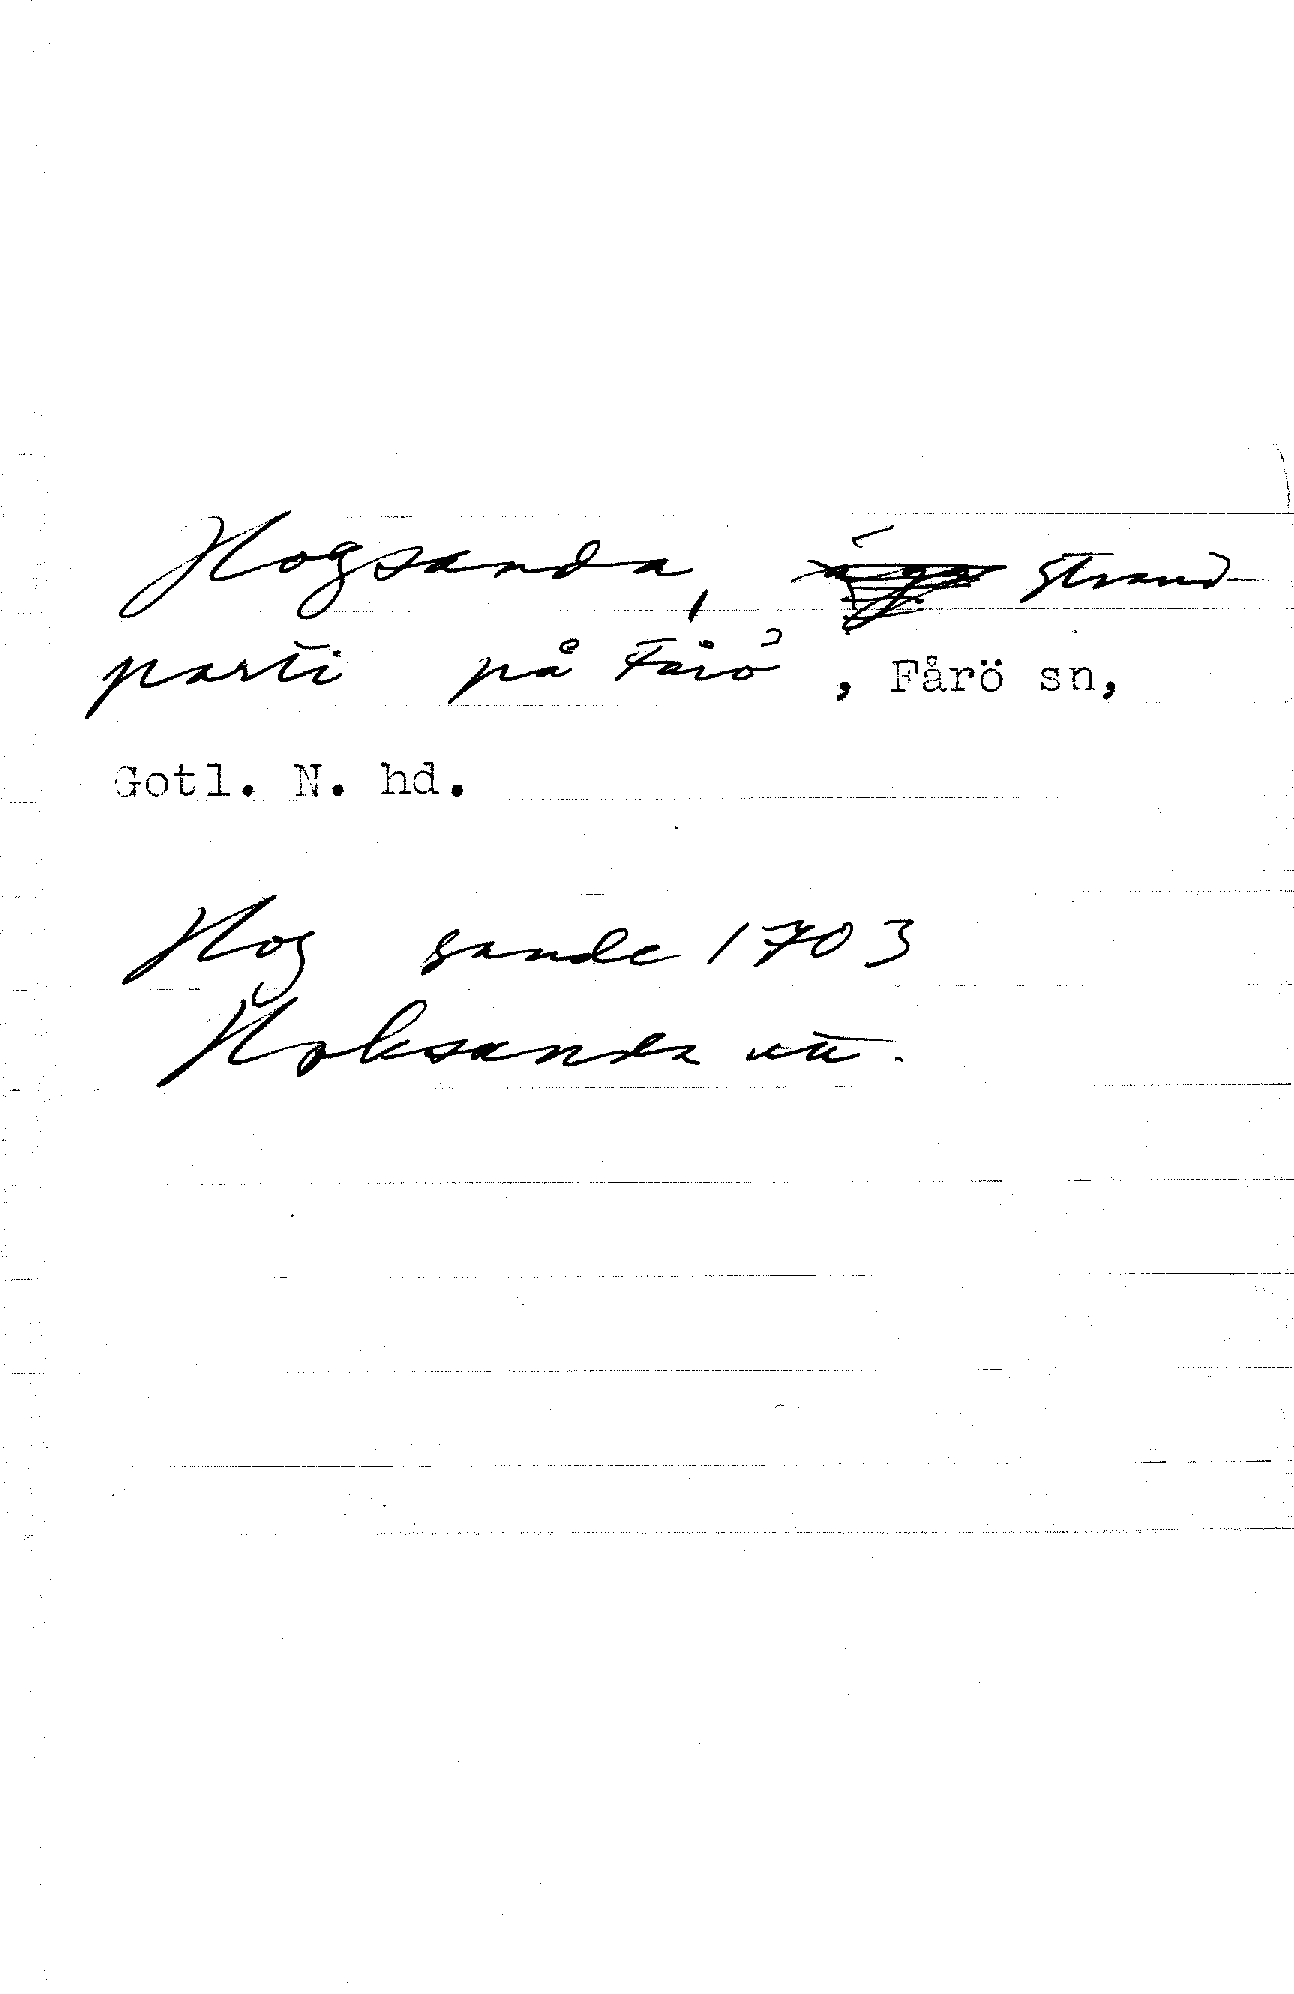 Hogsanda, strand
parti på Fårö, Fårö sn,
Gotl. N. hd.
Hog sande 1703
Hoksanda